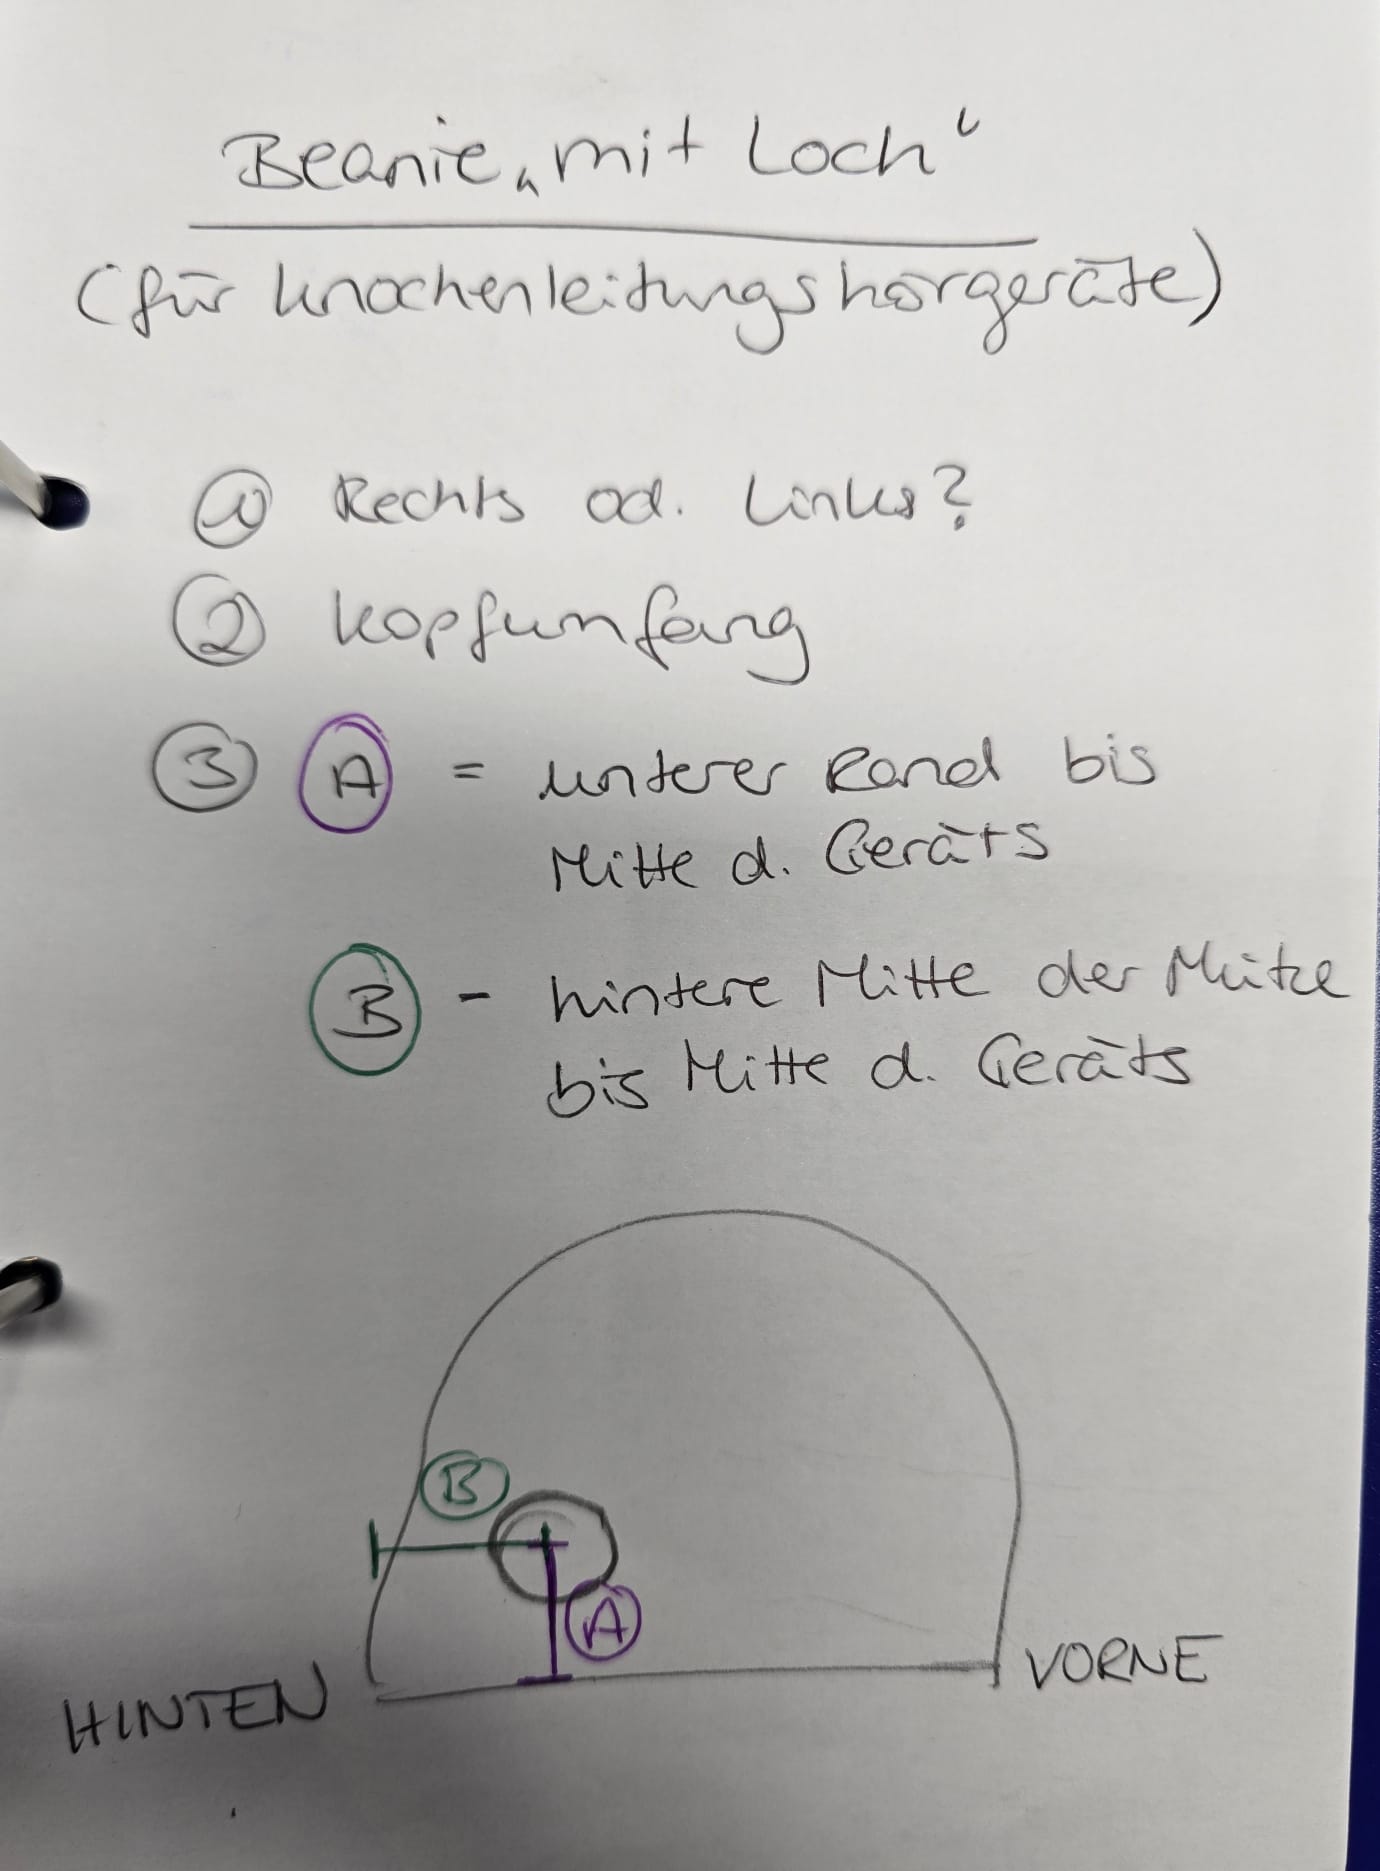 Beanie „mit Loch“
(für Knochenleitungshörgeräte)
① Rechts od. Links?
② Kopfumfang
③ Ⓐ = unterer Rand bis
Mitte d. Geräts
Ⓑ - hintere Mitte der Mütze
bis Mitte d. Geräts
Ⓑ
Ⓐ
HINTEN
VORNE